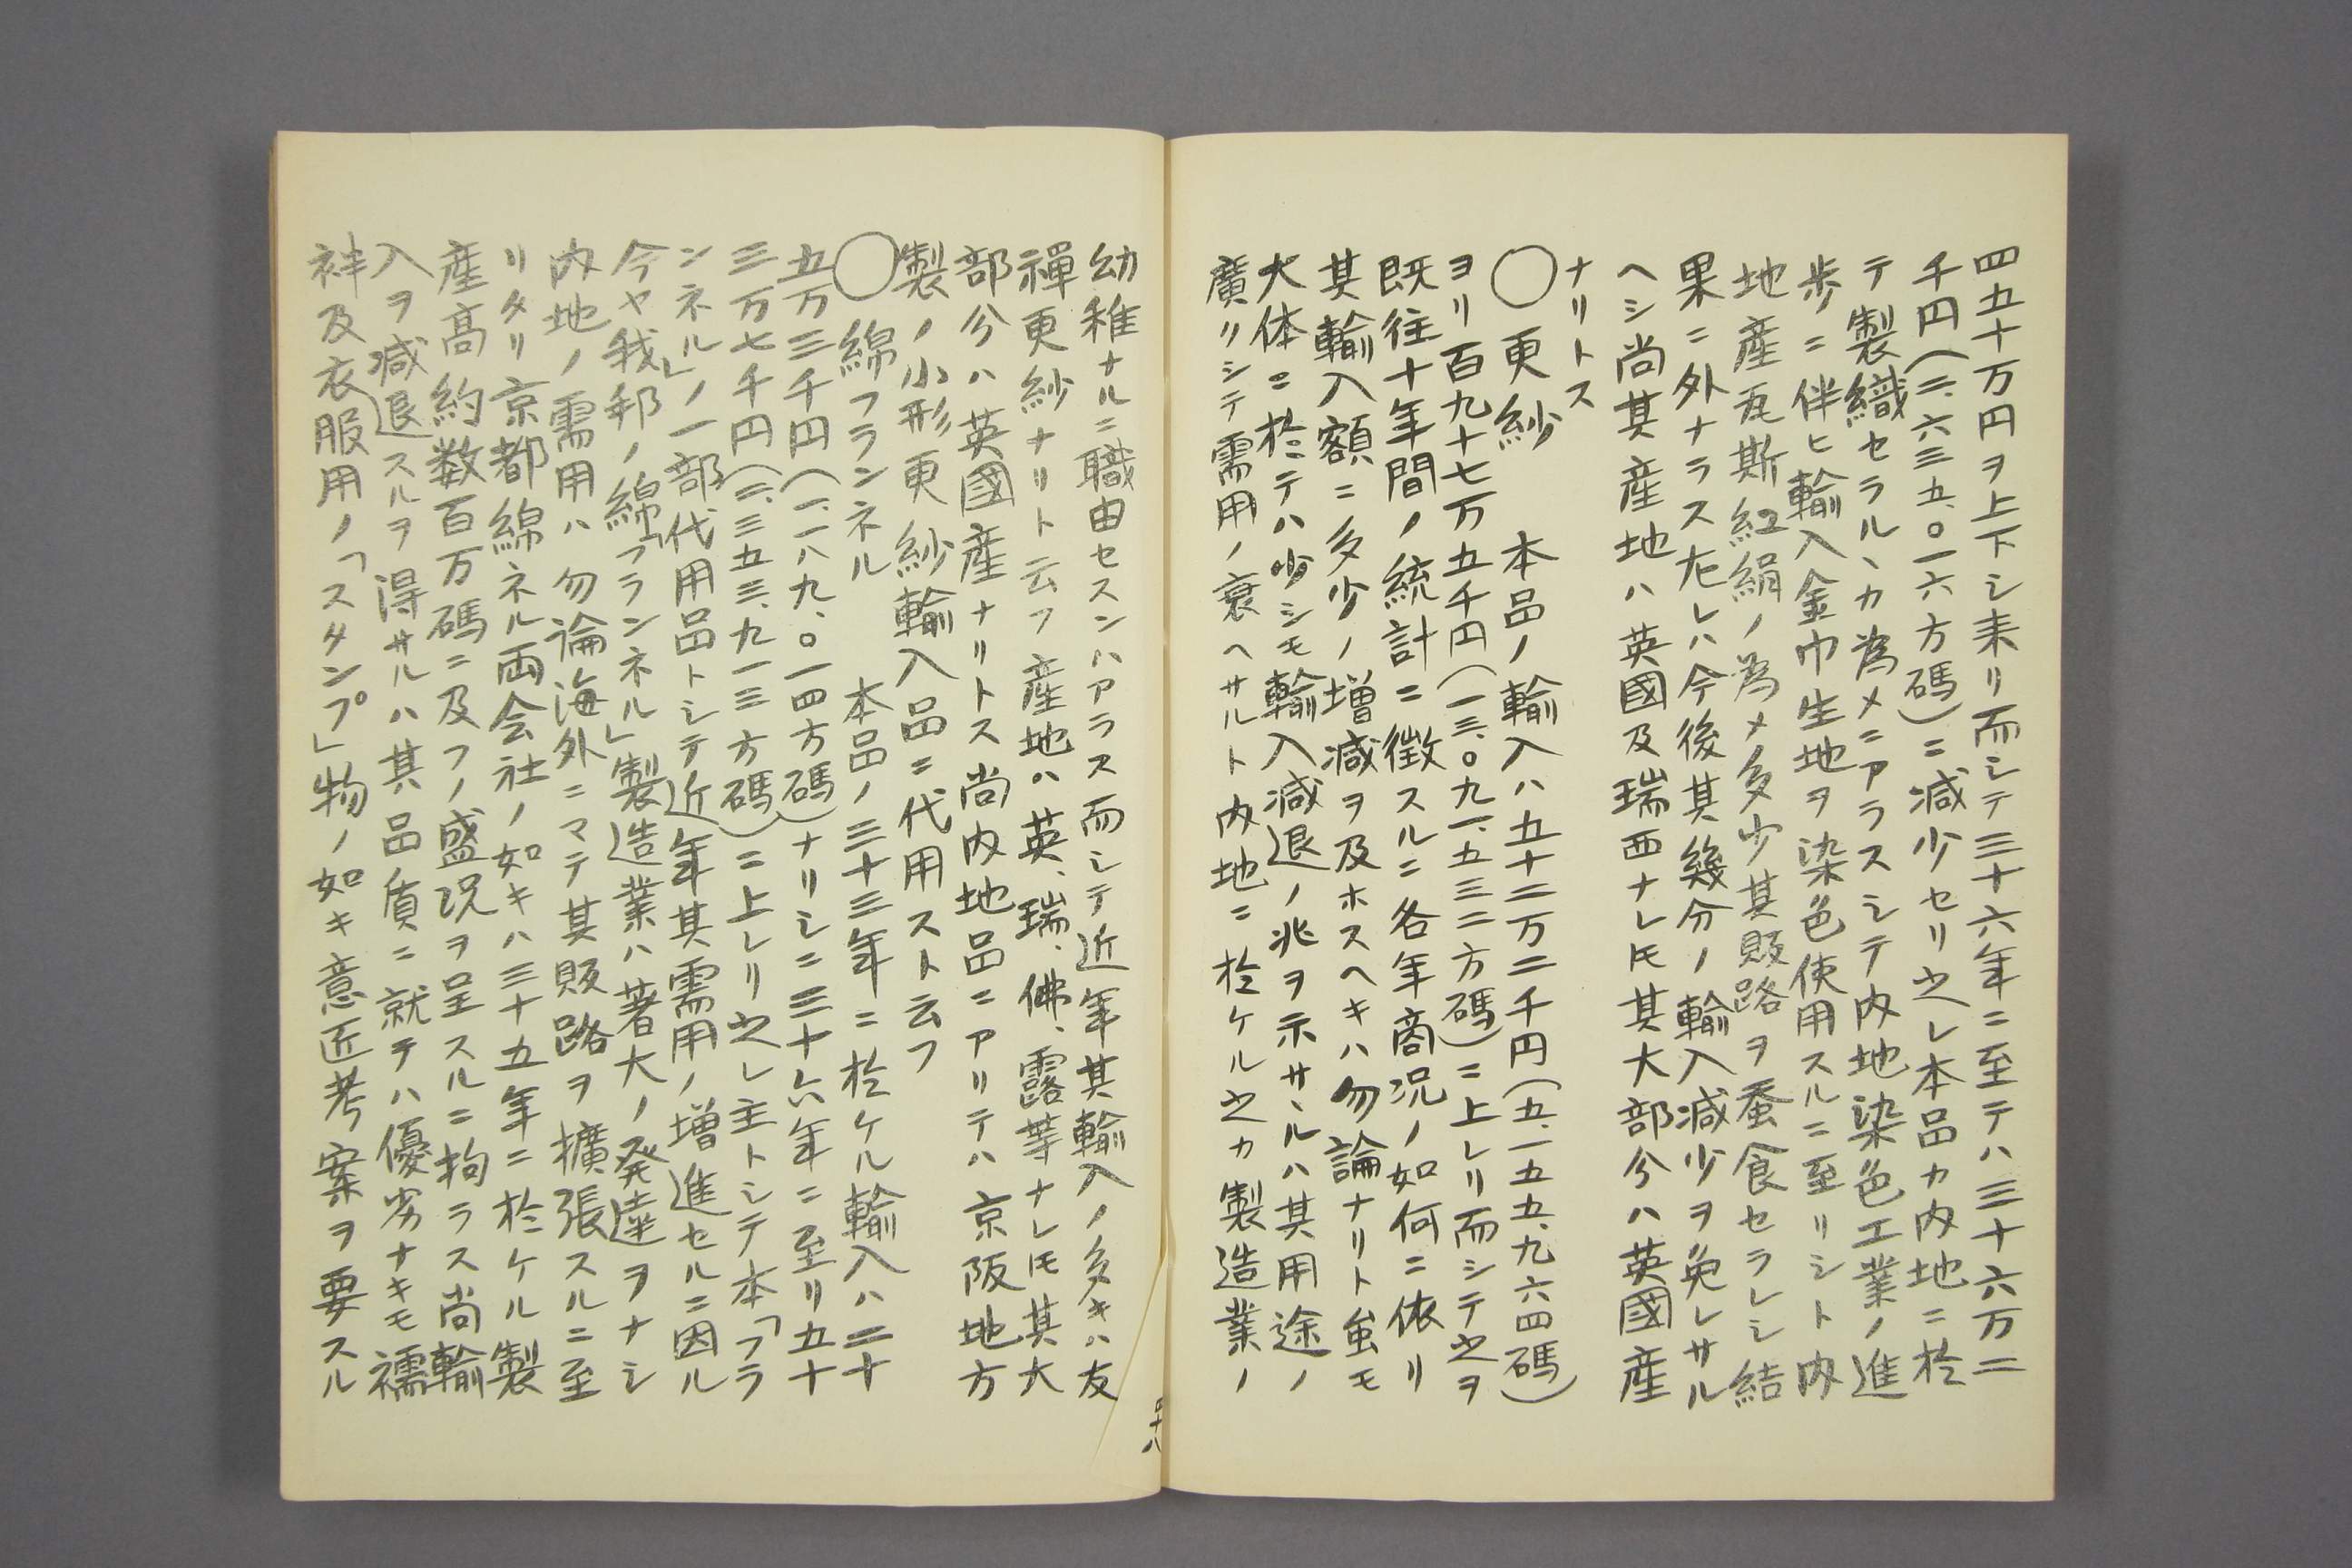 四五十万円ヲ上下シ来リ而シテ三十六年ニ至テハ三十六万二
千円(二、六三五、〇一六方碼)ニ減少セリ之レ本品カ内地ニ於
テ製織セラルヽカ為メニアラスシテ内地染色工業ノ進
歩ニ伴ヒ輸入金巾生地ヲ染色使用スルニ至リシト内
地産瓦斯紅絹ノ為メ多少其販路ヲ蚕食セラレシ結
果ニ外ナラス左レハ今後其幾分ノ輸入減少ヲ免レサル
ヘシ尚其産地ハ英國及瑞西ナレ𪜈其大部分ハ英國産
ナリトス
〇更紗 本品ノ輸入ハ五十二万二千円(五、一五五、九六四碼)
ヨリ百九十七万五千円(一三、〇九一、五三二方碼)ニ上レリ而シテ之ヲ
既往十年間ノ統計ニ徴スルニ各年商況ノ如何ニ依リ
其輸入額ニ多少ノ増減ヲ及ホスヘキハ勿論ナリト虽モ
大体ニ於テハ少シモ輸入減退ノ兆ヲ示サヽルハ其用途ノ
廣リシテ需用ノ衰ヘサルト内地ニ於ケル之カ製造業ノ
幼稚ナルニ職由セスンハアラス而シテ近年其輸入ノ多キハ友
禅更紗ナリト云フ産地ハ英、瑞、佛、露等ナレ𪜈其大
部分ハ英國産ナリトス尚内地品ニアリテハ京阪地方
製ノ小形更紗輸入品ニ代用スト云フ
〇綿フランネル 本品ノ三十三年ニ於ケル輸入ハ二十
五万三千円(一、一八九、〇一四方碼)ナリシニ三十六年ニ至リ五十
三万七千円(二、三五三、九一三方碼)ニ上レリ之レ主トシテ本「フラ
ンネル」ノ一部代用品トシテ近年其需用ノ増進セルニ因ル
今ヤ我邦ノ綿「フランネル」製造業ハ著大ノ発達ヲナシ
内地ノ需用ハ勿論海外ニマテ其販路ヲ擴張スルニ至
リタリ京都綿ネル両会社ノ如キハ三十五年ニ於ケル製
産高約数百万碼ニ及フノ盛況ヲ呈スルニ拘ラス尚輸
入ヲ減退スルヲ得サルハ其品質ニ就テハ優劣ナキモ襦
袢及衣服用ノ「スタンプ」物ノ如キ意匠考案ヲ要スル
四十八